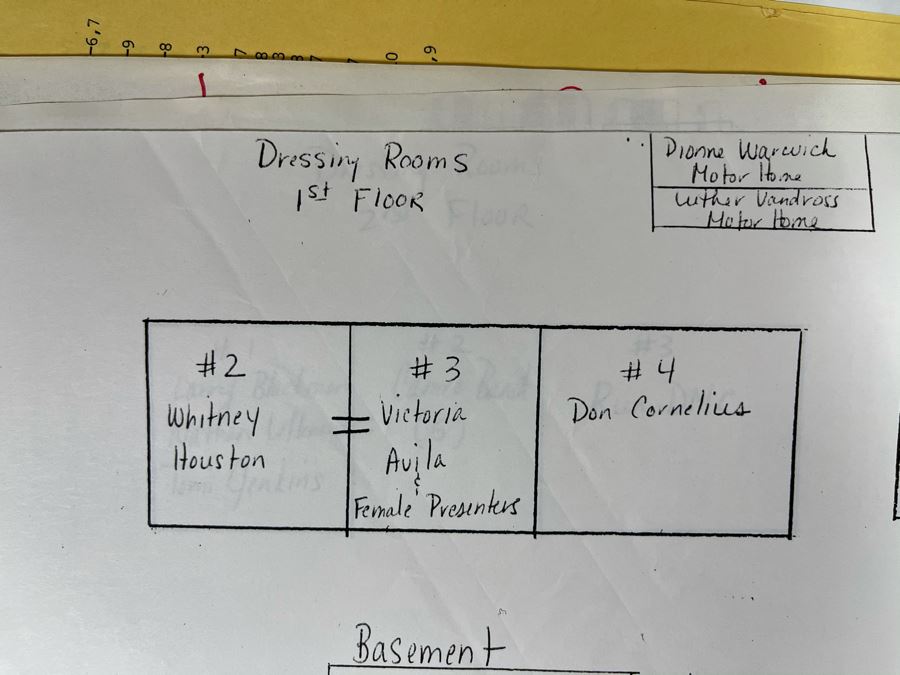 -6,7
-9
-8
-3
7
8
3
3
7
7
0
,9
Dressing Rooms
1st Floor
Dionne Warwick
Motor Home
Luther Vandross
Motor Home
#2
Whitney
Houston
#3
Victoria
Avila
&
Female Presenters
#4
Don Cornelius
Basement